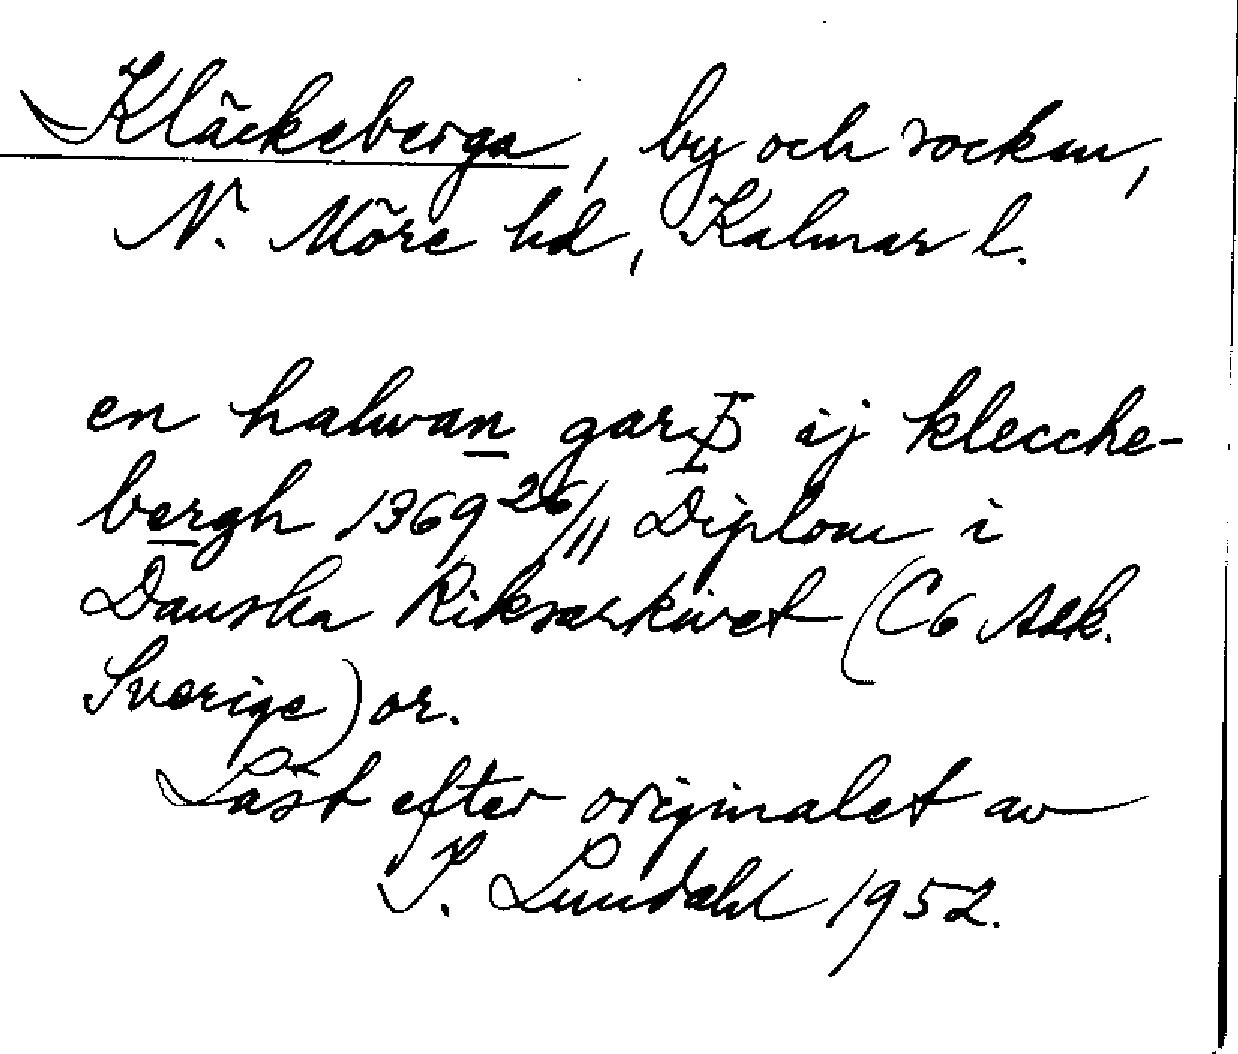 Kläckeberga, by och socken,
N. Möre hd, Kalmar l.
en halwan garþ ij klecche-
bergh 1369 26/11 Diplom i
Danska Riksarkivet (C6 Adk.
Sverige) or.
Läst efter originalet av
I. Lundahl 1952.